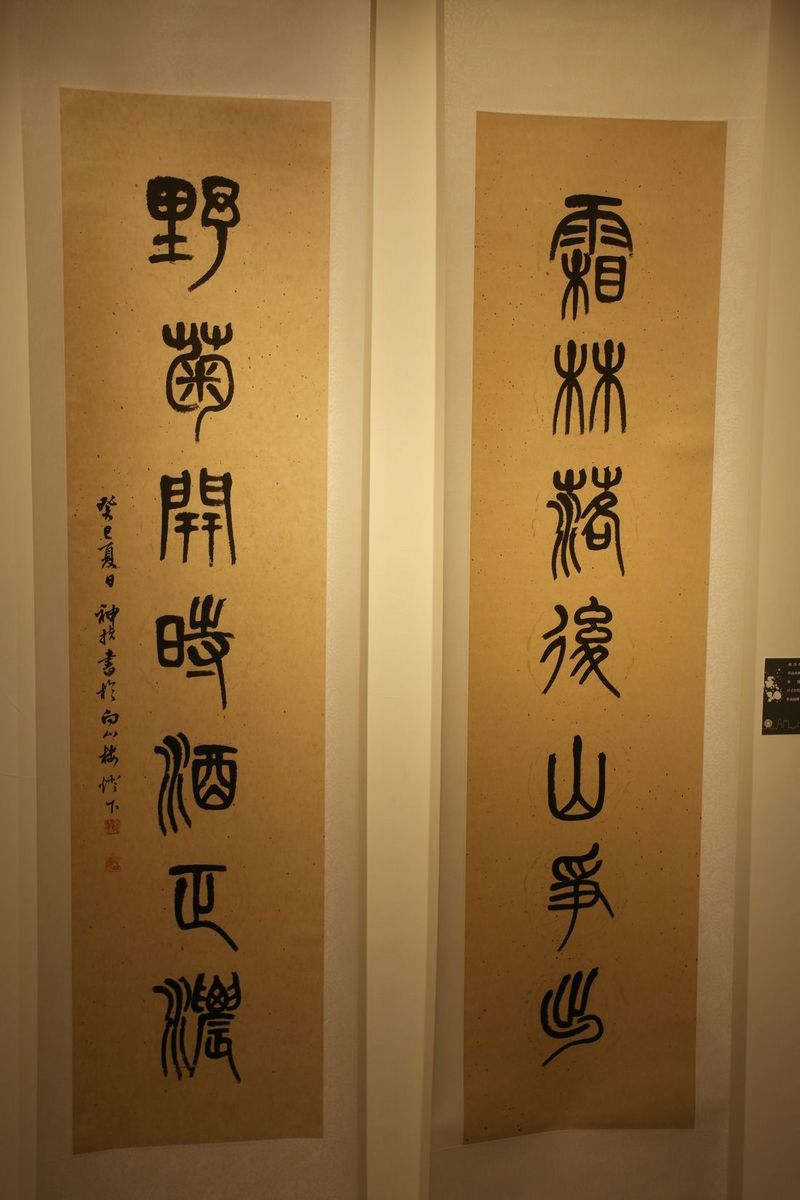 霜林落後山爭出
野菊開時酒正濃
癸巳夏日 神棋書於向山樓燈下